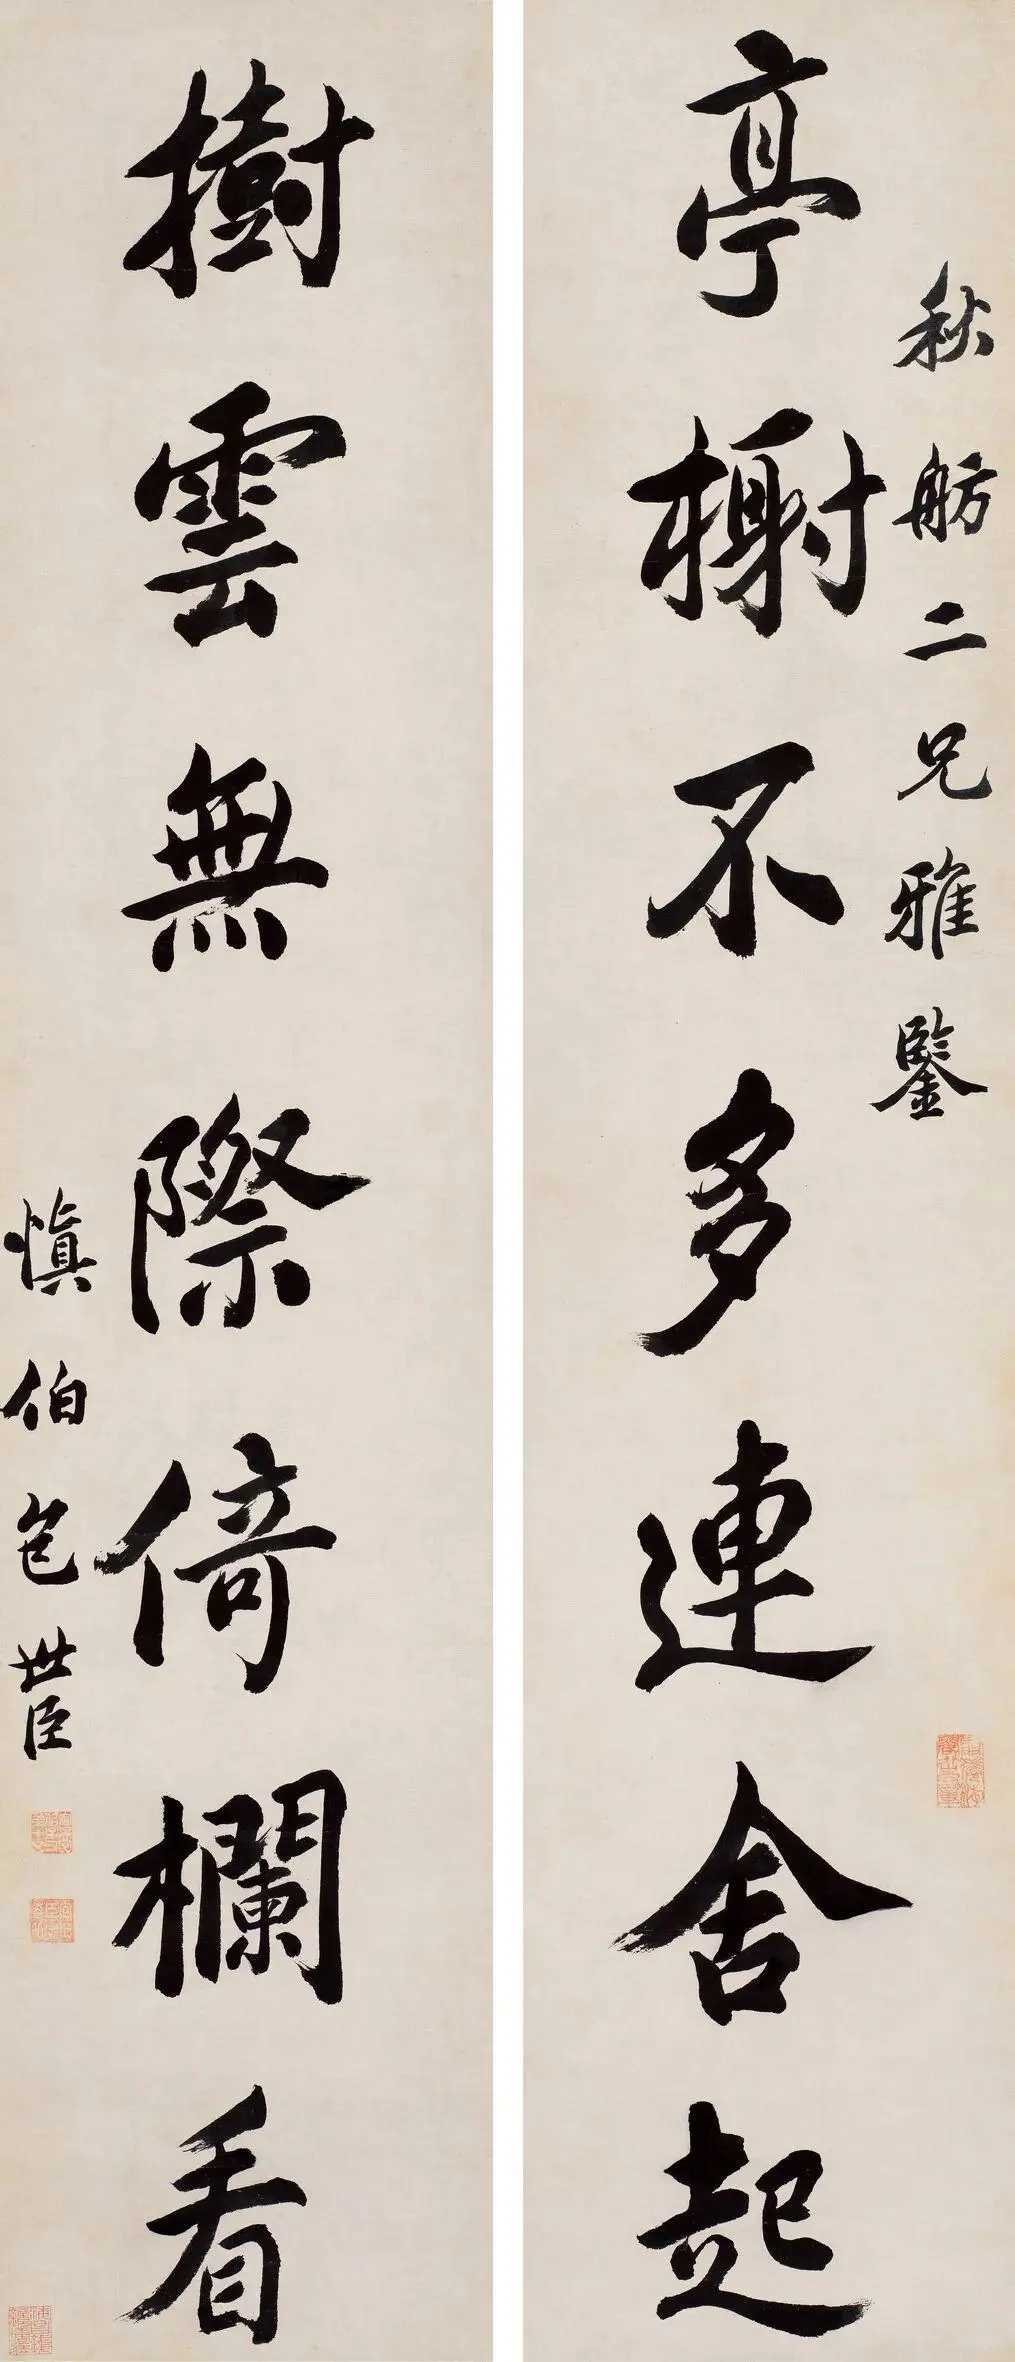 秋舫二兄雅鑒
亭榭不多連舍起
樹雲無際倚欄看
慎伯包世臣